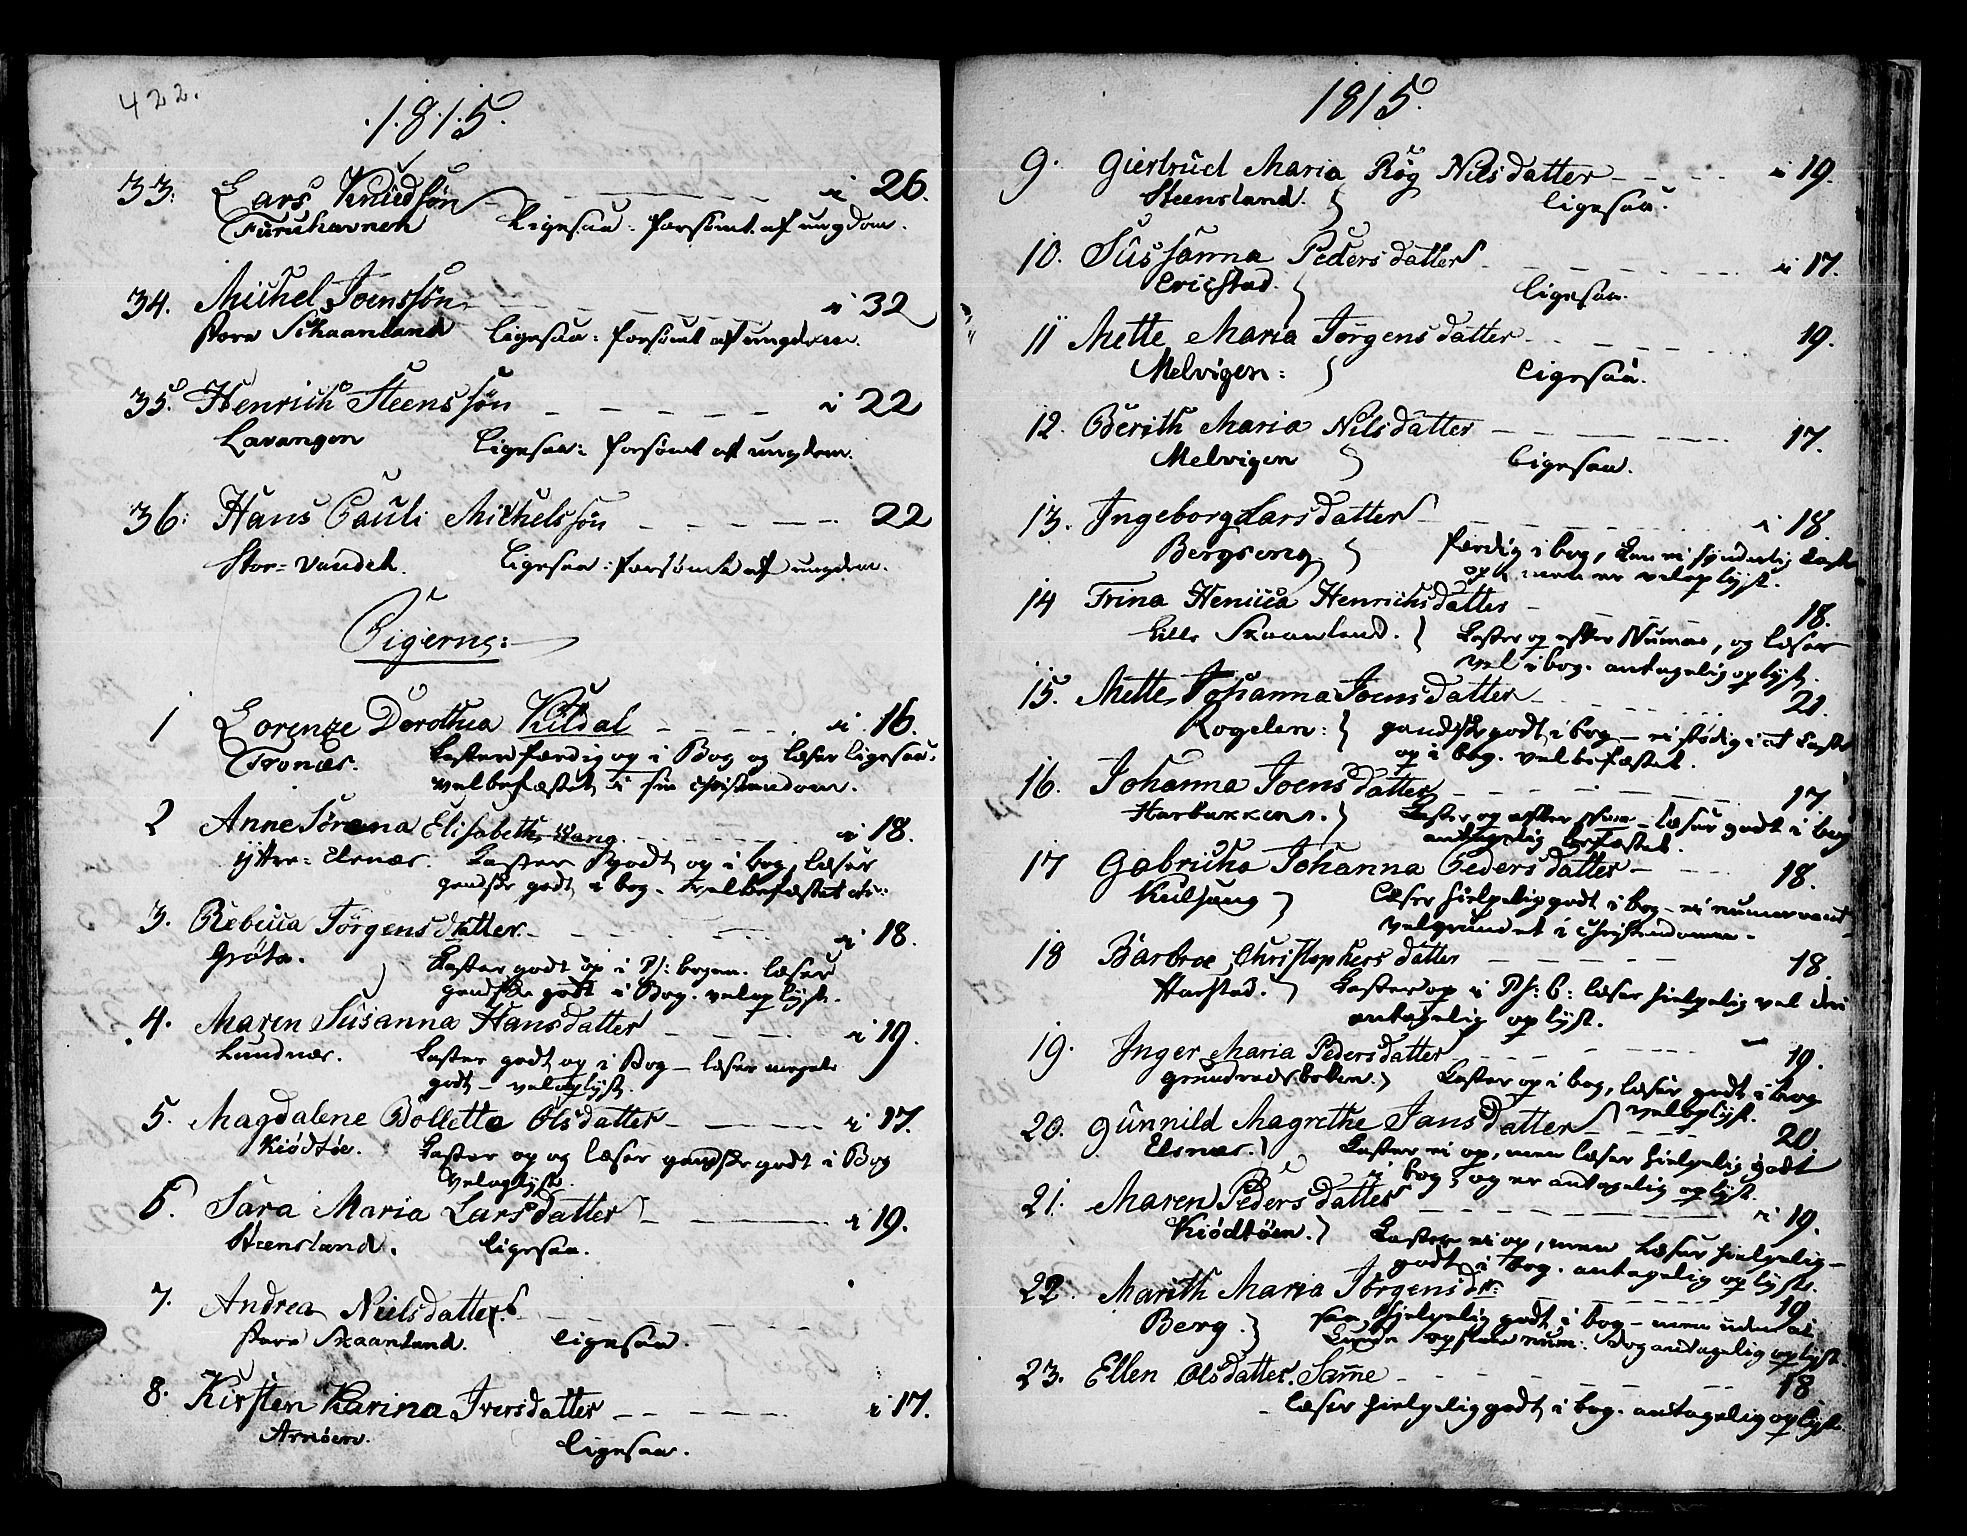 422.
1815.
33. Lars Knudsøn i 26.
Furuhavneh Ligesaa: forsömt af ungdom.
34. Michel Joenssøn i 32
store Schaanland Ligesaa: forsömt af ungdom.
35. Henrich Steenssøn i 22
Lavangen Ligesaa: forsömt af ungdom.
36: Hans Pauli Michelssøn 22
Stor=Vandeh. Ligesaa: forsömt af ungdom.
Pigerne:
1 Lorenze Dorothea Kildal i 16.
Tronæs. Caster færdig op i Bog og læser ligesaa.
velbefæstet i sin christendom.
2 Anne Sørena Elisabeth Wang i 18.
Yttre=Elsnæs. Caster godt op i bog, læser
gandske godt i bog. velbefæstet
3. Rebecca Jörgensdatter i 18.
Gröta. Caster godt op i Ps: bogen. læser
gandske godt i Bog. veloplyst.
4. Maren Susanna Hansdatter i 19.
Lundnæs. Caster godt op i Bog – læser meget
godt – veloplyst.
5. Magdalene Bolletta Olsdatter i 17.
Kiödtöe. Caster op og læser gandske godt i Bog
veloplyst.
6. Sara Maria Larsdatter i 19.
Steensland. Ligesaa.
7. Andrea Nielsdatter
store Skaanland. Ligesaa.
8. Kirsten Karina Iversdatter i 17.
Arnöen. Ligesaa.
1815.
9. Giertrud Maria Røg Nilsdatter i 19.
Steensland. Ligesaa.
10. Susanna Pedersdatter i 17.
Ericstad. Ligesaa.
11 Mette Maria Jörgensdatter 19.
Melvigen: Ligesaa.
12. Berith Maria Nilsdatter 17.
Melvigen Ligesaa.
13. Ingeborg Larsdatter i 18.
Bergseng færdig i bog, kan ei synderlig Caste
op, men er veloplyst.
14 Trina Henrica Henrichsdatter 18.
Lille Skaanland. Caster op efter Numer, og læser
vel i bog. antagelig oplyst.
15. Mette Johanna Joensdatter 21.
Rogelen: gandske godt i bog – ei stödig i at Caste
op i bog. velbefæstet.
16. Johanna Joensdatter 17
Harbakken. Caster op efter – læser godt i bog
antagelig befæstet.
17 Gabricha Johanna Pedersdatter 18.
Kulsang læser hielpelig godt i bog – ei
velgrundet i christendommen.
18 Barbroe Christophersdatter 18.
Harstad. Caster op i Ps: b: læser hielpelig vel deri
antagelig oplyst.
19. Inger Maria Pedersdatter 19.
Grundrodsbotten. Caster op i bog, læser godt i bog
veloplyst.
20. Gunnild Magrethe Jansdatter 20
Elsnæs. Caster ei op, men læser hielpelig godt
i bog, og er antagelig oplyst.
21. Maren Pedersdatter i 19.
Kiödtöen. Caster ei op, men læser hielpelig –
godt i bog. antagelig oplyst.
22. Marith Maria Jörgensdr: 19
Berg. hielpelig godt i bog – men uden at
kunde opslaae num: dog antagelig oplyst.
23. Ellen Olsdatter. Same 18
læser hielpelig godt i bog. antagelig oplyst.